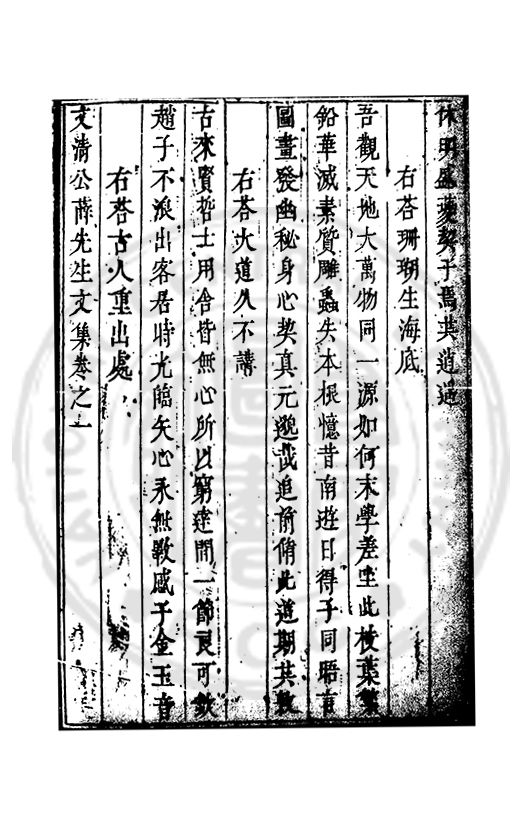 休明盛夔契子焉其遁過
右荅珊瑚生海底
吾觀天地大萬物同一源如何末學差坐此枝葉繁
鉛華滅素質雕蟲失本根憶昔南遊日得子同晤言
圖畫發幽秘身心契真元邈哉追前脩此道期共敦
右荅大道久不講
古來賢哲士用舍皆無心所以窮達間一節良可欽
趙子不浪出客居時光臨矢心永無斁感子金玉音
右荅古人重出處
文清公薛先生文集卷之一